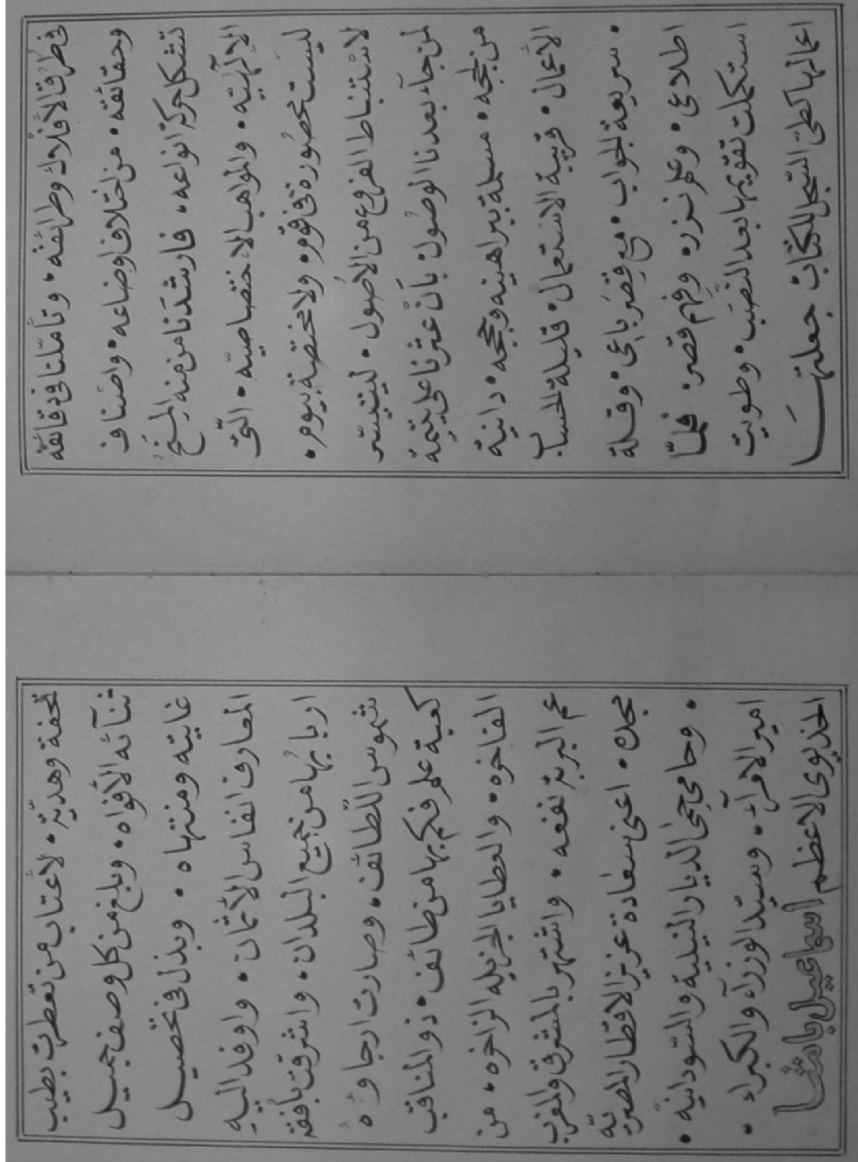 في طرق الأفلاك وطرائقه • وتأملنا في دقائقه
وحقائقه • من اختلاف اوضاعه • واصناف
تشكل حركة انواعه • فارشدنا من منه المنح
الإلهيّه • والمواهب الاختصاصيّه • التّي
ليست محصورة في قوم • ولا مختصة بيوم •
لاستنباط الفروع من الاصول • ليتيسّر
لمن جاء بعدنا الوصول • بأن عثرنا على يتيمة
من لججه • مسلمة ببراهينه وحججه • دانية
الأعمال • قريبة الاستعمال • قليلة الحساب
• سريعة الجواب • مع قصر باعي • وقلة
اطلاعي • وعلم نزره وفهم قصر • فلمّا
استكملت تقويمها بعد النصب • وطويت
اعمالها كطيّ السّجل للكتاب جعلتها
تحفة وهديّة • لأعتاب من تعطرت بطيب
ثنآئه الأفواه • وبلغ من كل وصف جميل
غايته ومنتهاه • وبذل في تحصيل
المعارف انفاس الأثمان • واوفد اليه
اربابها من جميع البلدان • واشرقت بأفقه
شموس اللّطائف • وصارت ارجاؤه
كعبة علم فكم بها من طائف • ذو المناقب
الفاخره • والعطايا الجزيله الزاخره • من
عم البرية نفعه • واشتهر بالمشرق والمغرب
مجده • اعني سعادة عزيز الاقطار المصريّة
• وحامي حمى الديار النيلية والسّودانية •
امير الامرآء • وسيّد الوزرآء والكبراء •
الخديوي الاعظم اسماعيل پاشا